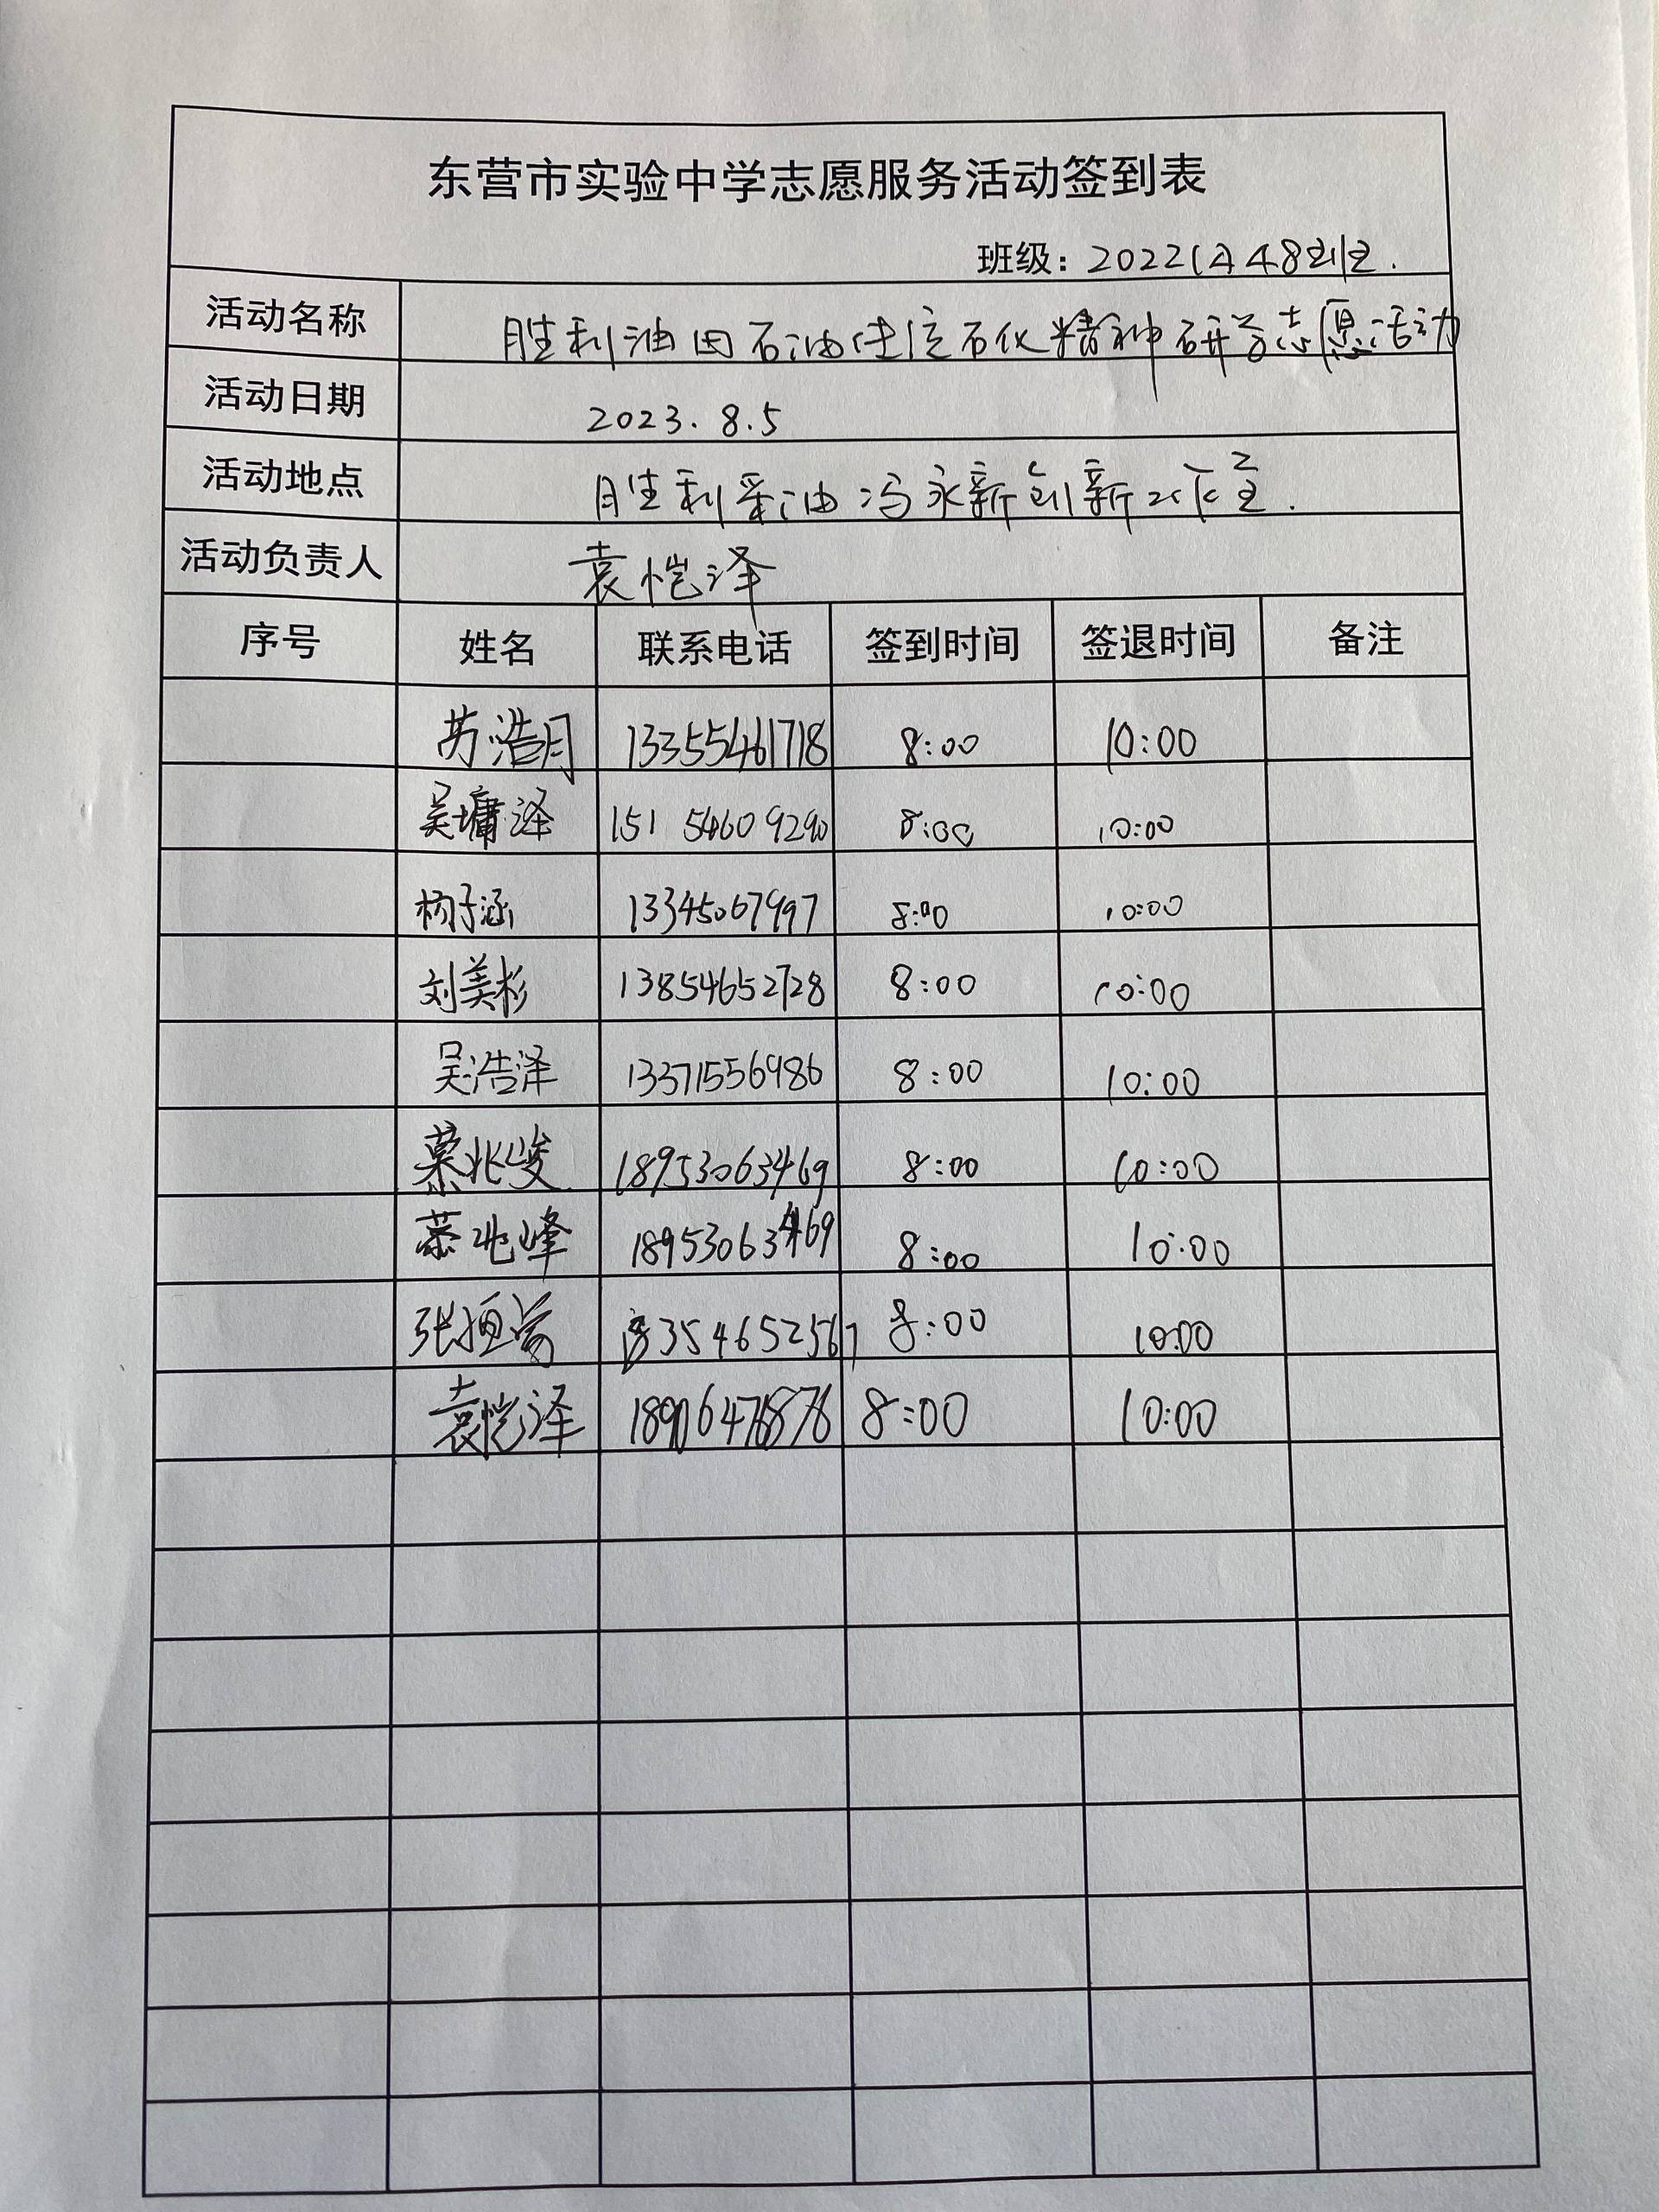 东营市实验中学志愿服务活动签到表
班级：2022级48班.
活动名称 胜利油田石油传统石化精神研学志愿活动
活动日期 2023.8.5
活动地点 胜利采油冯永新创新工作室.
活动负责人 袁恺泽
序号 姓名 联系电话 签到时间 签退时间 备注
苏浩月 13355461718 8:00 10:00
吴墉泽 151 5460 9290 8:00 10:00
杨子涵 13345067997 8:00 10:00
刘美杉 13854652728 8:00 10:00
吴浩泽 13371556986 8:00 10:00
慕兆峻 18953063469 8:00 10:00
慕兆峰 18953063469 8:00 10:00
张 8:00 10:00
袁恺泽 8:00 10:00